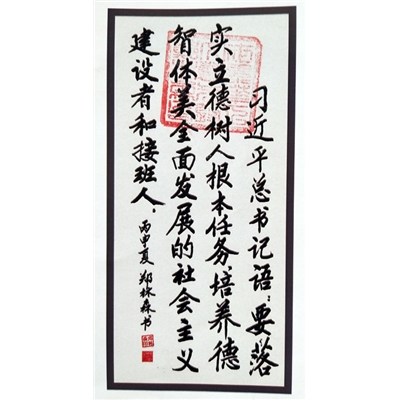 习近平总书记语：要落
实立德树人根本任务，培养德
智体美全面发展的社会主义
建设者和接班人，
丙申夏 郑林森书